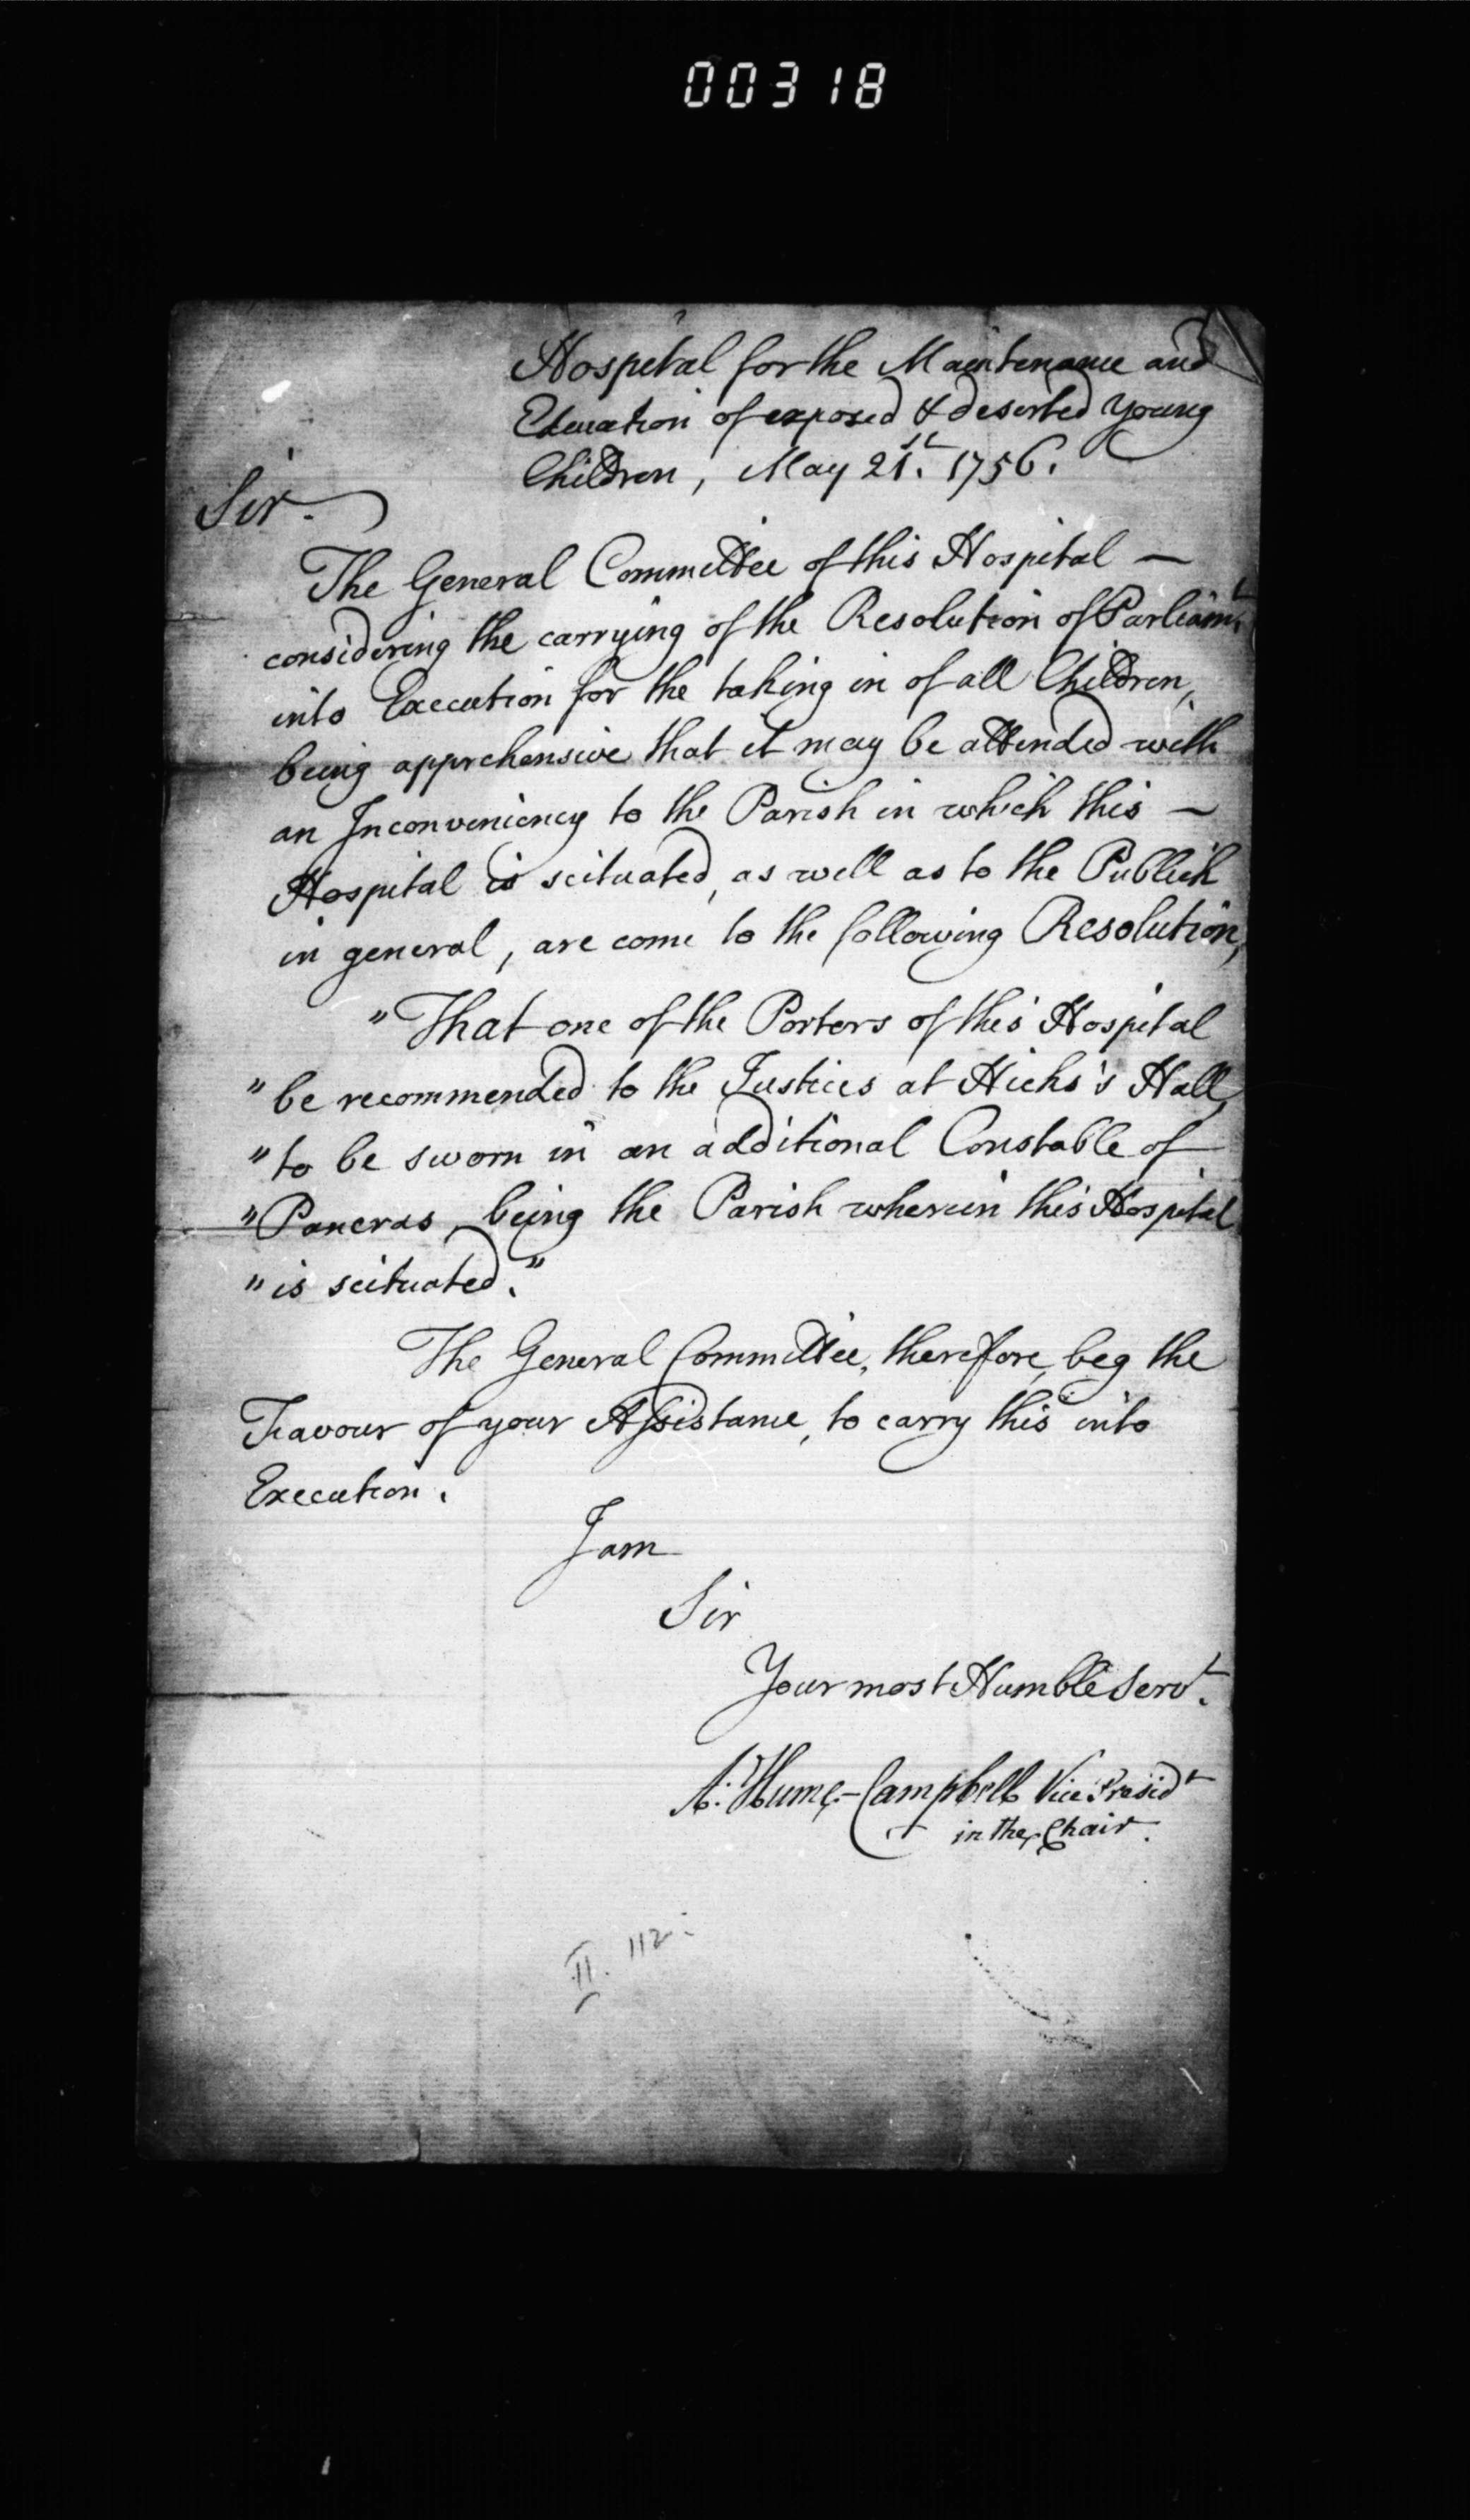 00318
Hospital for the Maintenance and
Education of exposed & deserted Young
Children, May 21st. 1756.
Sir.
The General Committee of this Hospital —
considering the carrying of the Resolution of Parliamt.
into Execution for the taking in of all Children,
being apprehensive that it may be attended with
an Inconveniency to the Parish in which this —
Hospital is scituated, as well as to the Publick
in general, are come to the following Resolution,
"That one of the Porters of this Hospital
"be recommended to the Justices at Hicks's Hall,
"to be sworn in an additional Constable of
"Pancras, being the Parish wherein this Hospital
"is scituated."
The General Committee, therefore, beg the
Favour of your Assistance, to carry this into
Execution.
I am
Sir
Your most Humble Servt.
A: Hume-Campbell Vice Presidt
in the Chair.
II. 112.